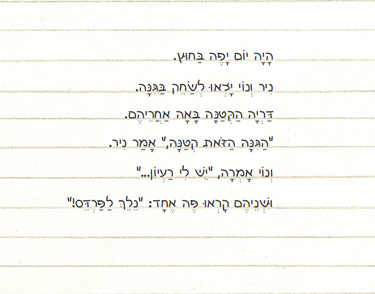 הָיָה יוֹם יָפֶה בַּחוּץ.
נִיר וְנוֹי יָצְאוּ לְשַׂחֵק בַּגִּנָּה.
דַּרְיָה הַקְּטַנָּה בָּאָה אַחֲרֵיהֶם.
"הַגִּנָּה הַזֹּאת קְטַנָּה," אָמַר נִיר.
וְנוֹי אָמְרָה, "יֵשׁ לִי רַעְיוֹן..."
וּשְׁנֵיהֶם קָרְאוּ פֶּה אֶחָד: "נֵלֵךְ לַפַּרְדֵּס!"